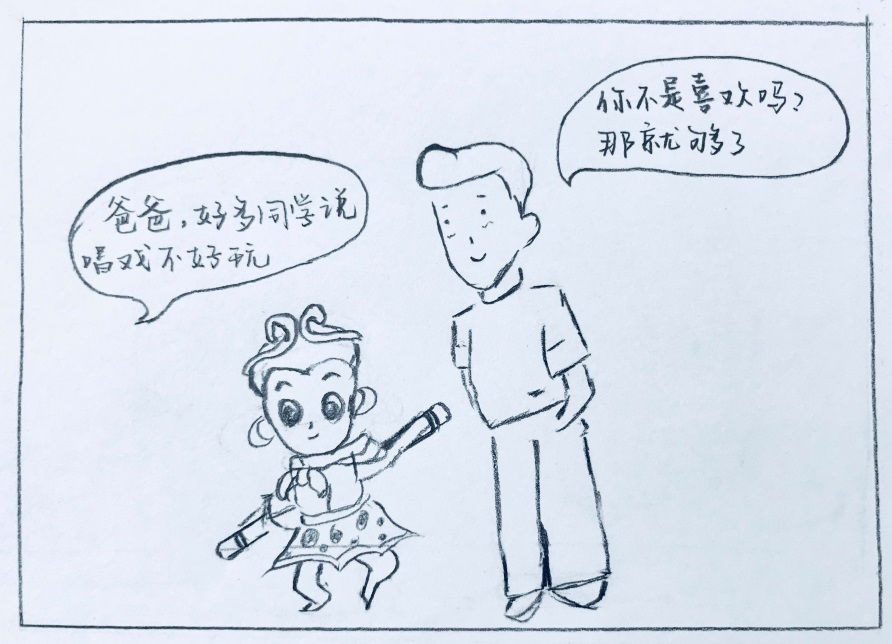 爸爸，好多同学说
唱戏不好玩
你不是喜欢吗？
那就够了